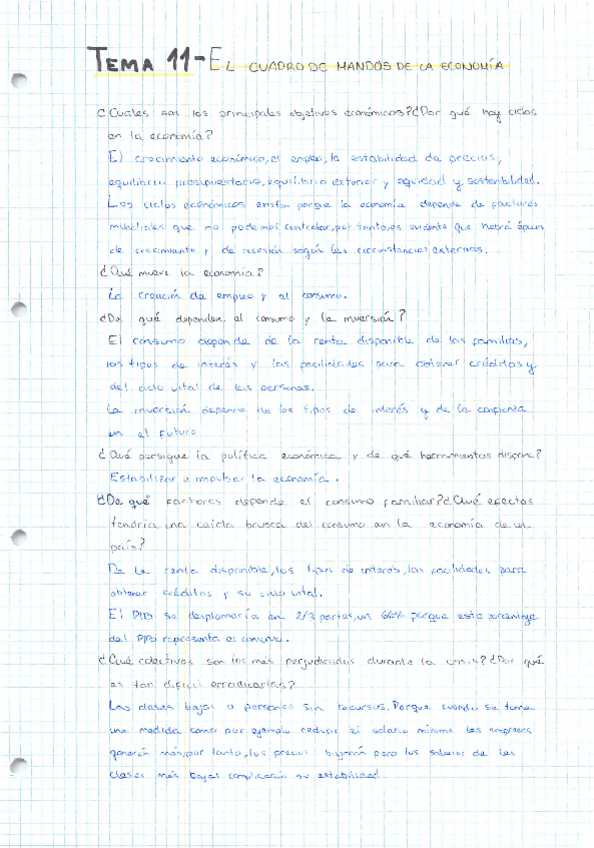 TEMA 11-EL CUADRO DE MANDOS DE LA ECONOMÍA
¿Cuáles son los principales objetivos económicos?¿Por qué hay ciclos
en la economía?
El crecimiento económico, el empleo, la estabilidad de precios,
equilibrio presupuestario, equilibrio exterior y equidad y sostenibilidad.
Los ciclos económicos existen porque la economía depende de factores
mundiales que no podemos controlar, por tanto es evidente que habrá épocas
de crecimiento y de recesión según las circunstancias externas.
¿Qué mueve la economía?
La creación de empleo y el consumo.
¿De qué dependen el consumo y la inversión?
El consumo depende de la renta disponible de las familias,
los tipos de interés y las facilidades para obtener créditos y
del ciclo vital de las personas.
La inversión depende de los tipos de interés y de la confianza
en el futuro
¿Qué persigue la política económica y de qué herramientas dispone?
Estabilizar e impulsar la economía.
¿De qué factores depende el consumo familiar?¿Qué efectos
tendría una caída brusca del consumo en la economía de un
país?
De la renta disponible, los tipos de interés, las facilidades para
obtener créditos y su ciclo vital.
El PIB se desplomaría en 2/3 partes, un 66% porque este porcentaje
del PIB representa el consumo.
¿Qué colectivos son los más perjudicados durante la crisis?¿Por qué
es tan difícil erradicarlas?
Las clases bajas o personas sin recursos. Porque cuando se toma
una medida como por ejemplo reducir el salario mínimo las empresas
ganarán más, por tanto, los precios bajarán pero los salarios de las
clases más bajas complicarán su estabilidad.